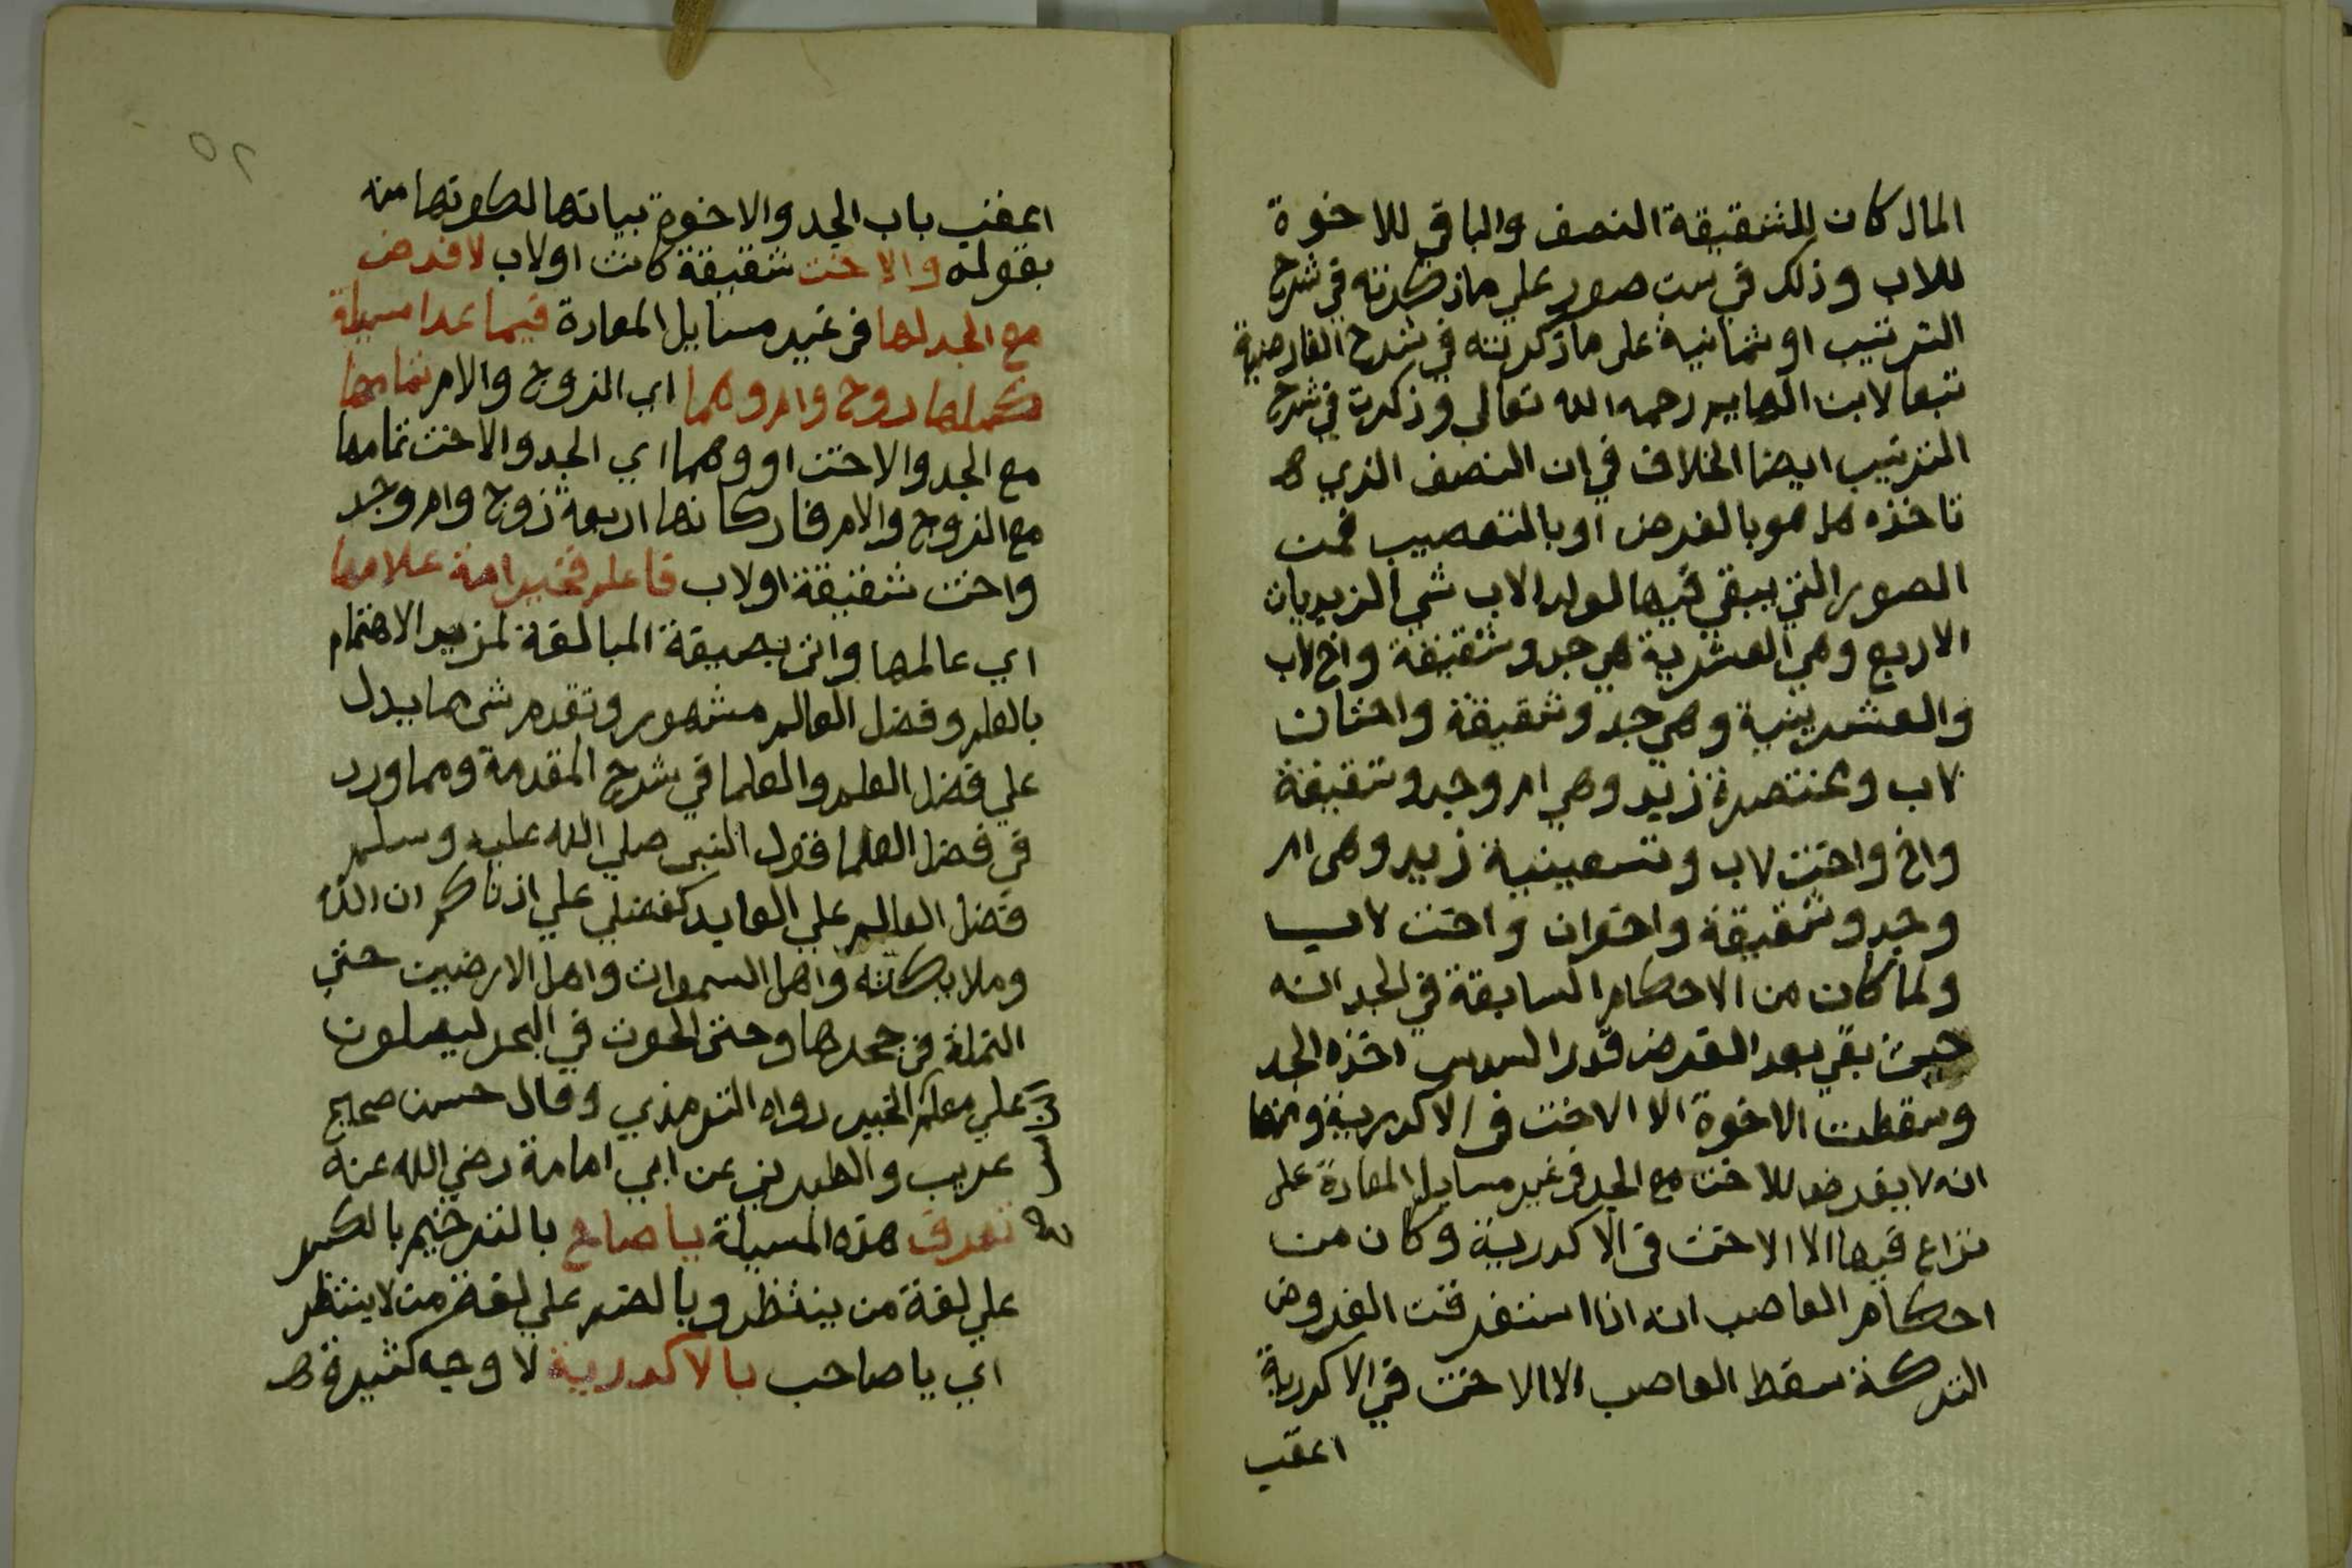 المال كان للشقيقة النصف والباقي للاخوة
للاب وذلك في ست صور علي ماذكرته في شرح
الترتيب او ثمانية على ماذكرته في شرح الفارضية
تبعا لابن الهايم رحمه الله تعالي وذكرت في شرح
الترتيب ايضا الخلاف في ان النصف الذي
تاخذه هل هو بالفرض او بالتعصيب فمن
الصور التي يبقي فيها لولد الاب شي الزيديات
الاربع وهي العشرية هي جد وشقيقة واخ لاب
والعشرينية وهي جد وشقيقة واختان
لاب ومختصرة زيد وهي ام وجد وشقيقة
واخ واخت لاب وتسعينية زيد وهي ام
وجد وشقيقة واخوان واخت لاب
ولما كان من الاحكام السابقة في الجد انه
حيث بقي بعد الفرض قدر السدس اخذه الجد
وسقطت الاخوة الا الاخت في الاكدرية ومنها
انه لا يفرض للاخت مع الجد في غير مسايل المعادة على
نزاع فيها الا الاخت في الاكدرية وكان من
احكام العاصب انه اذا استغرقت الفروض
التركة سقط العاصب الا الاخت في الاكدرية
اعقب
٥٢
اعقب باب الجد والاخوة ببيانها لكونها منه
بقوله والاخت شقيقة كانت او لاب لا فرض
مع الجد لها في غير مسايل المعادة فيما عدا مسيلة
كملها زوج وام وهما اي الزوج والام تمامها
مع الجد والاخت او وهما اي الجد والاخت تمامها
مع الزوج والام فاركانها اربعة زوج وام وجد
واخت شقيقة او لاب فاعلم فخير امة علامها
اي عالمها واتى بصيغة المبالغة لمزيد الاهتمام
بالعلم وفضل العالم مشهور وتقدم شي مما يدل
علي فضل العلم والعلما في شرح المقدمة ومما ورد
في فضل العلما قول النبي صلي الله عليه وسلم
فضل العالم علي العابد كفضلي علي ادناكم ان الله
وملايكته واهل السموات واهل الارضين حتي
النملة في جحرها وحتى الحوت في البحر ليصلون
علي معلم الخير رواه الترمذي وقال حسن صحيح
غريب والطبرني عن ابي امامة رضي الله عنه
تعرف هذه المسيلة يا صاح بالترخيم بالكسر
علي لغة من ينتظر وبالضم علي لغة من لا ينتظر
اي يا صاحب بالاكدرية لاوجه كثيرة